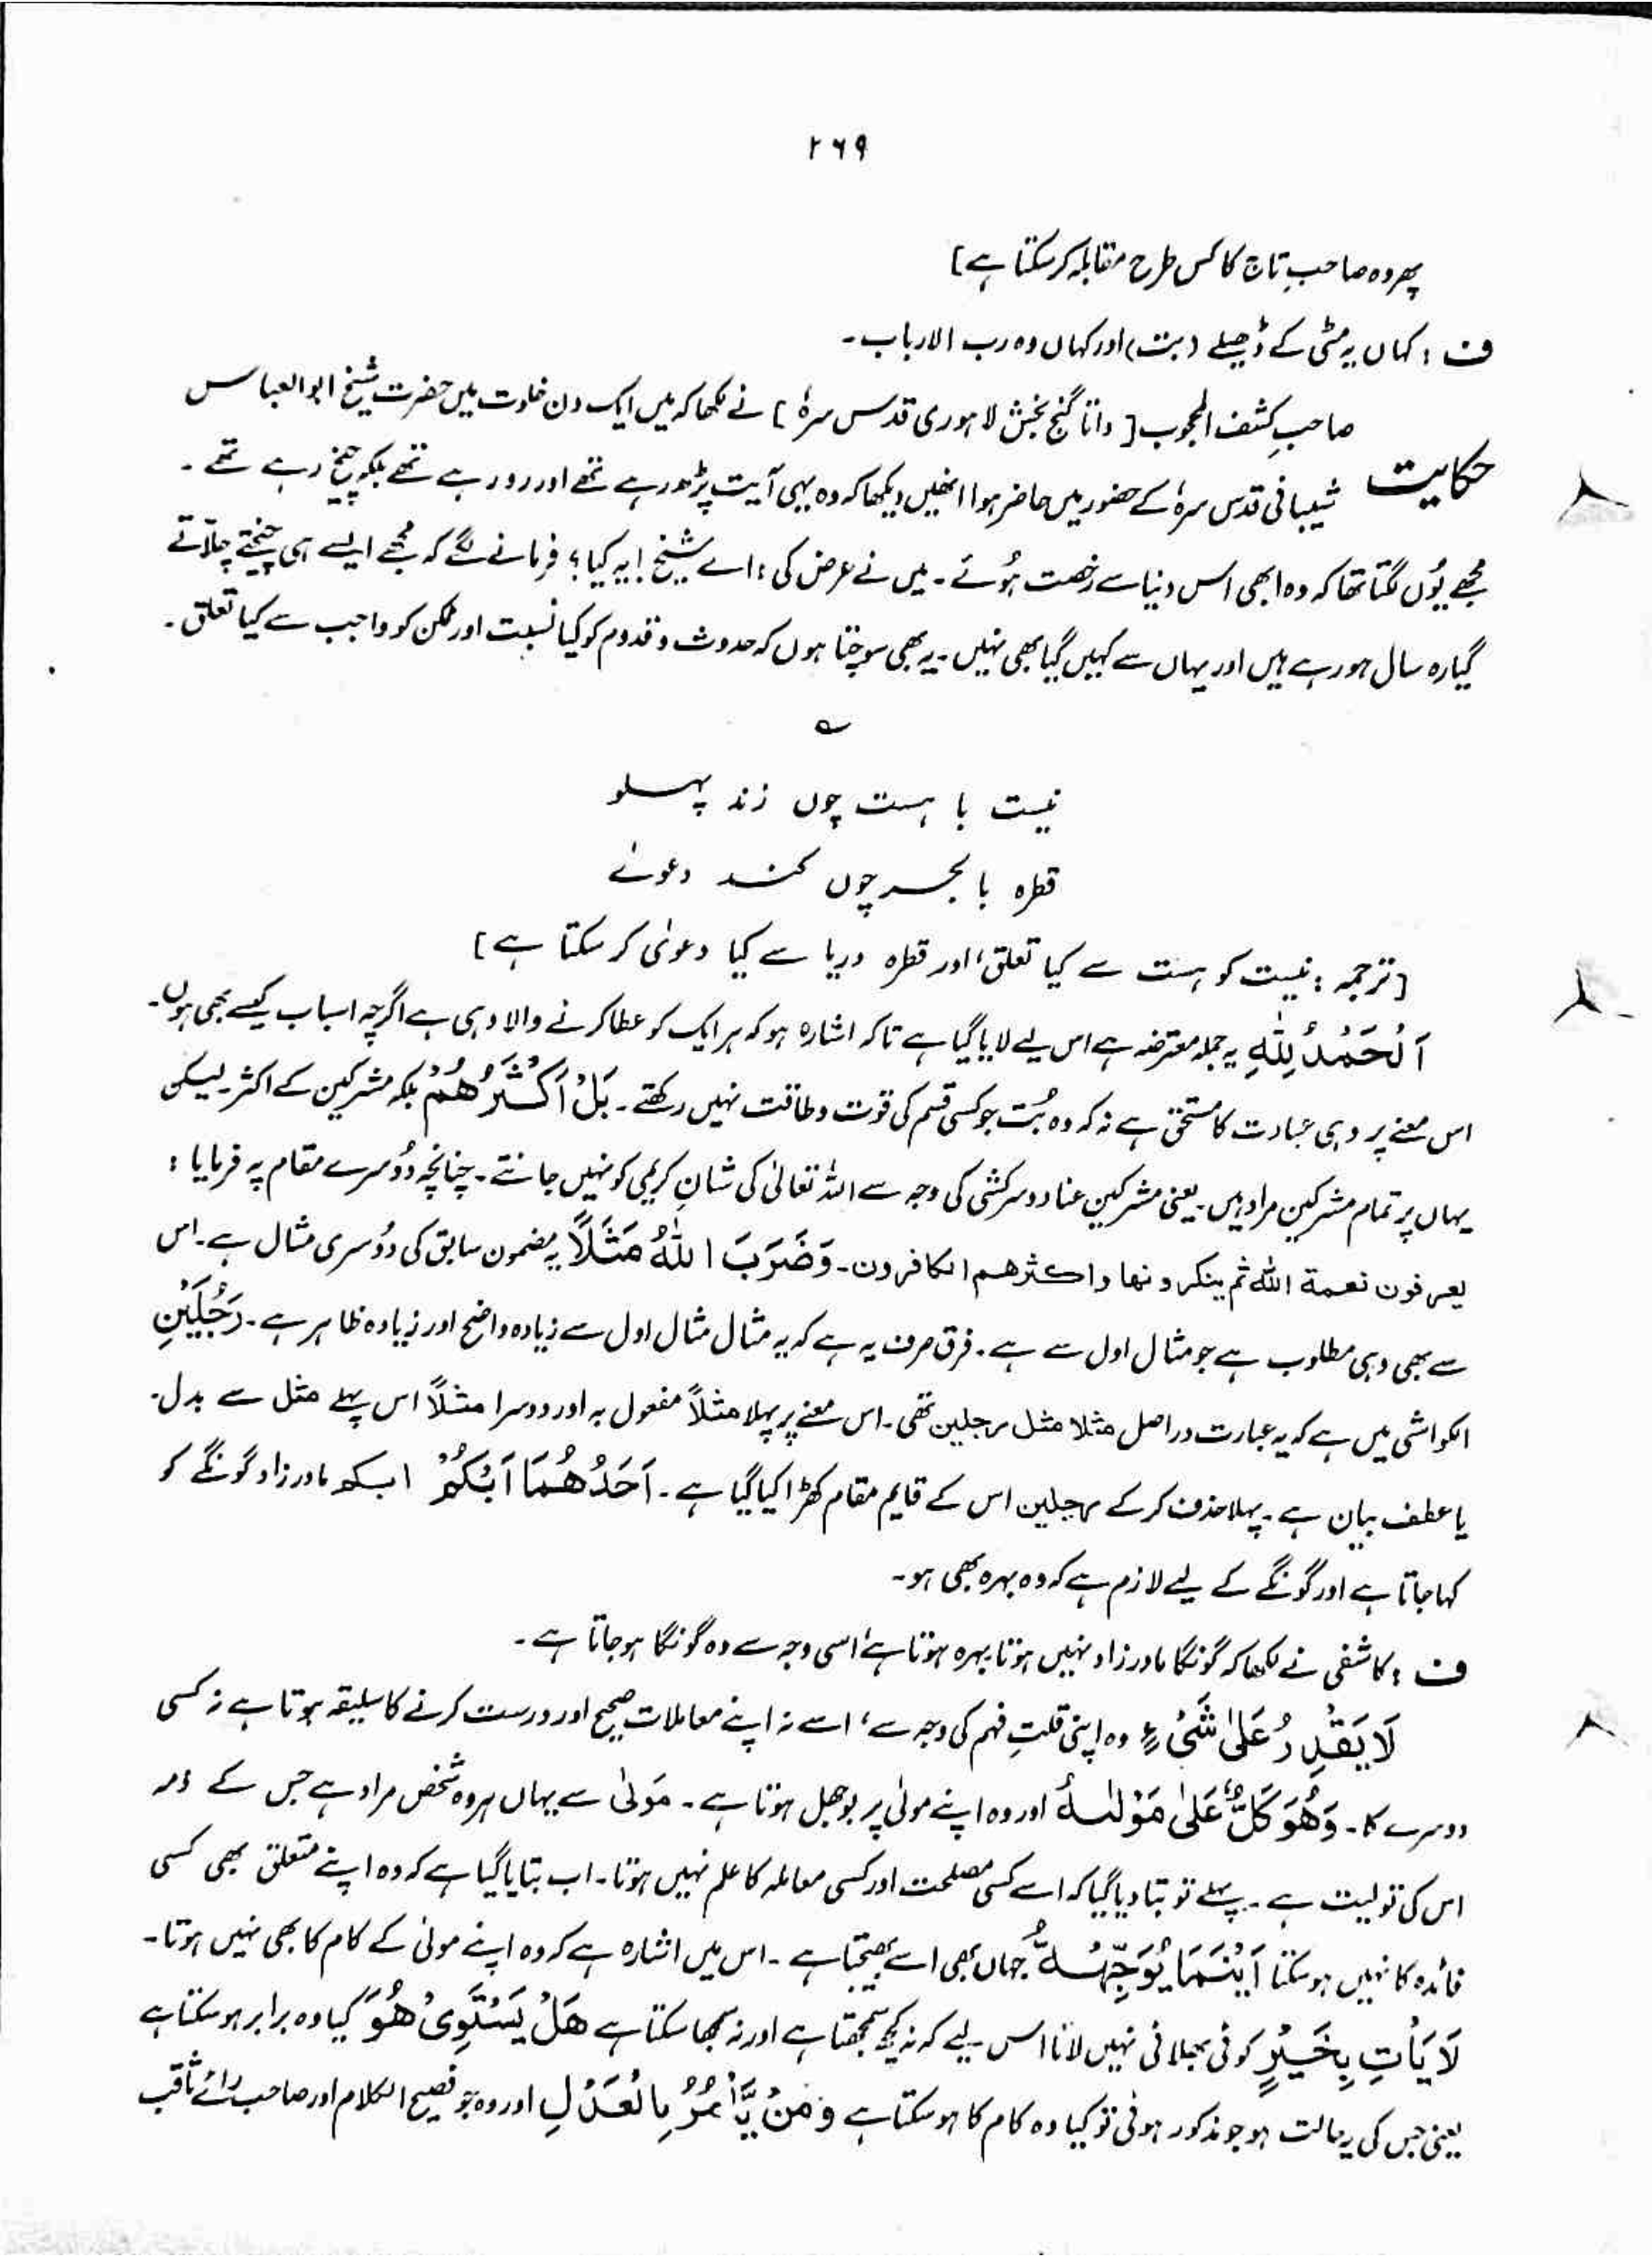 ۲۶۹
پھر وہ صاحبِ تاج کا کس طرح مقابلہ کر سکتا ہے]
ف : کہاں یہ مٹی کے ڈھیلے (بت) اور کہاں وہ رب الارباب۔
صاحبِ کشف المحجوب [داتا گنج بخش لاہوری قدس سرہٗ] نے لکھا کہ میں ایک دن خلوت میں حضرت شیخ ابو العباس
حکایت شیبانی قدس سرہٗ کے حضور میں حاضر ہوا انھیں دیکھا کہ وہ یہی آیت پڑھ رہے تھے اور رو رہے تھے بلکہ چیخ رہے تھے۔
مجھے یُوں لگتا تھا کہ وہ ابھی اس دنیا سے رخصت ہُوئے۔ میں نے عرض کی : اے شیخ! یہ کیا ؟ فرمانے لگے کہ مجھے ایسے ہی چیختے چلاّتے
گیارہ سال ہو رہے ہیں اور یہاں سے کہیں گیا بھی نہیں۔ یہ بھی سوچتا ہوں کہ حدوث و قدوم کو کیا نسبت اور ممکن کو واجب سے کیا تعلق۔
؎
نیست با ہست چوں زند پہلو
قطرہ با بحر چوں کند دعوئے
[ترجمہ : نیست کو ہست سے کیا تعلق، اور قطرہ دریا سے کیا دعوٰی کر سکتا ہے]
اَلْحَمْدُ لِلّٰہِ یہ جملہ معترضہ ہے اس لیے لایا گیا ہے تاکہ اشارہ ہو کہ ہر ایک کو عطا کرنے والا وہی ہے اگرچہ اسباب کیسے بھی ہوں۔
اس معنے پر وہی عبادت کا مستحق ہے نہ کہ وہ بُت جو کسی قسم کی قوت و طاقت نہیں رکھتے۔ بَلْ اَکْثَرُھُمْ بلکہ مشرکین کے اکثر لیکن
یہاں پر تمام مشرکین مراد ہیں۔ یعنی مشرکین عناد و سرکشی کی وجہ سے اللہ تعالیٰ کی شانِ کریمی کو نہیں جانتے۔ چنانچہ دُوسرے مقام پہ فرمایا :
یعرفون نعمۃ اللہ ثم ینکرونھا واکثرھم الکافرون۔ وَضَرَبَ اللّٰہُ مَثَلًا یہ مضمون سابق کی دُوسری مثال ہے۔ اس
سے بھی وہی مطلوب ہے جو مثال اول سے ہے۔ فرق صرف یہ ہے کہ یہ مثال مثال اول سے زیادہ واضح اور زیادہ ظاہر ہے۔ رَجُلَیْنِ
الکواشی میں ہے کہ یہ عبارت دراصل مثلا مثل رجلین تھی۔ اس معنے پر پہلا مثلاً مفعول بہ اور دوسرا مثلاً اس پہلے مثل سے بدل۔
یا عطف بیان ہے۔ پہلا حذف کر کے رجلین اس کے قایم مقام کھڑا کیا گیا ہے۔ اَحَدُھُمَا اَبْکَمُ ابکم مادر زاد گونگے کو
کہا جاتا ہے اور گونگے کے لیے لازم ہے کہ وہ بہرہ بھی ہو۔
ف : کاشفی نے لکھا کہ گونگا مادر زاد نہیں ہوتا بہرہ ہوتا ہے، اسی وجہ سے وہ گونگا ہو جاتا ہے۔
لَا یَقْدِرُ عَلٰی شَیْءٍ وہ اپنی قلتِ فہم کی وجہ سے، اسے نہ اپنے معاملات صحیح اور درست کرنے کا سلیقہ ہوتا ہے نہ کسی
دوسرے کا۔ وَھُوَ کَلٌّ عَلٰی مَوْلٰىہُ اور وہ اپنے مولٰی پر بوجھل ہوتا ہے۔ مَولیٰ سے یہاں ہر وہ شخص مراد ہے جس کے ذمہ
اس کی تولیت ہے۔ پہلے تو بتا دیا گیا کہ اسے کسی مصلحت اور کسی معاملہ کا علم نہیں ہوتا۔ اب بتایا گیا ہے کہ وہ اپنے متعلق بھی کسی
فائدہ کا نہیں ہو سکتا اَیْنَمَا یُوَجِّھْہُّ جہاں بھی اسے بھیجتا ہے۔ اس میں اشارہ ہے کہ وہ اپنے مولیٰ کے کام کا بھی نہیں ہوتا۔
لَا یَاْتِ بِخَیْرٍ کوئی بھلائی نہیں لاتا اس لیے کہ نہ کچھ سمجھتا ہے اور نہ سمجھا سکتا ہے ھَلْ یَسْتَوِیْ ھُوَ کیا وہ برابر ہو سکتا ہے
یعنی جس کی یہ حالت ہو جو مذکور ہوئی تو کیا وہ کام کا ہو سکتا ہے وَمَنْ یَّاْمُرُ بِالْعَدْلِ اور وہ جو فصیح الکلام اور صاحب رائے ثاقب